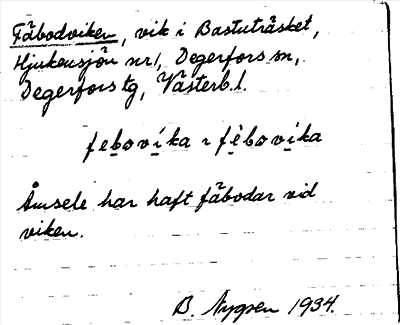 Fäbodviken, vik i Bastuträsket,
Hjukensjön nr 1, Degerfors sn,
Degerfors tg, Västerb. l.
febovika ~ fèbovika
Åmsele har haft fäbodar vid
viken.
B. Nygren 1934.